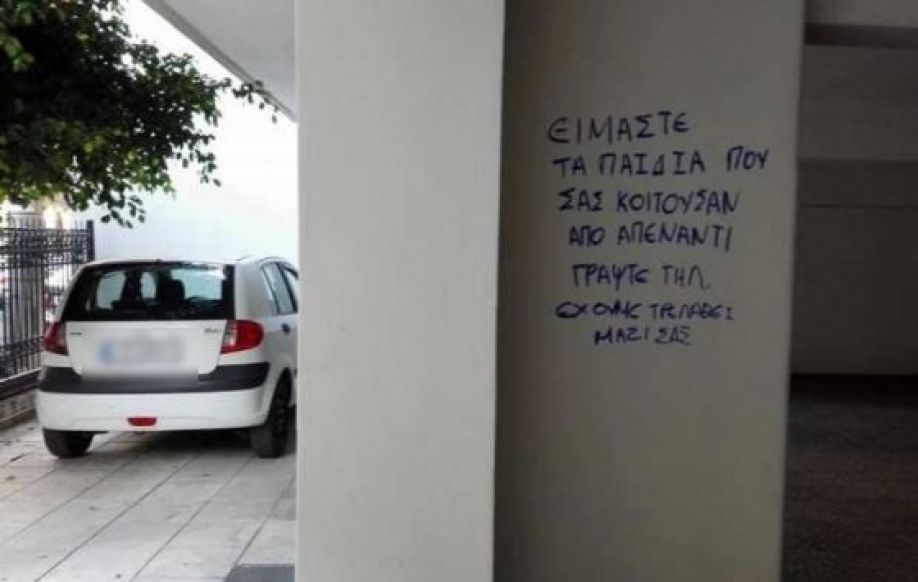 ΕΙΜΑΣΤΕ
ΤΑ ΠΑΙΔΙΑ ΠΟΥ
ΣΑΣ ΚΟΙΤΟΥΣΑΝ
ΑΠΟ ΑΠΕΝΑΝΤΙ
ΓΡΑΨΤΕ ΤΗΛ.
ΕΧΟΥΜΕ ΤΡΕΛΑΘΕΙ
ΜΑΖΙ ΣΑΣ